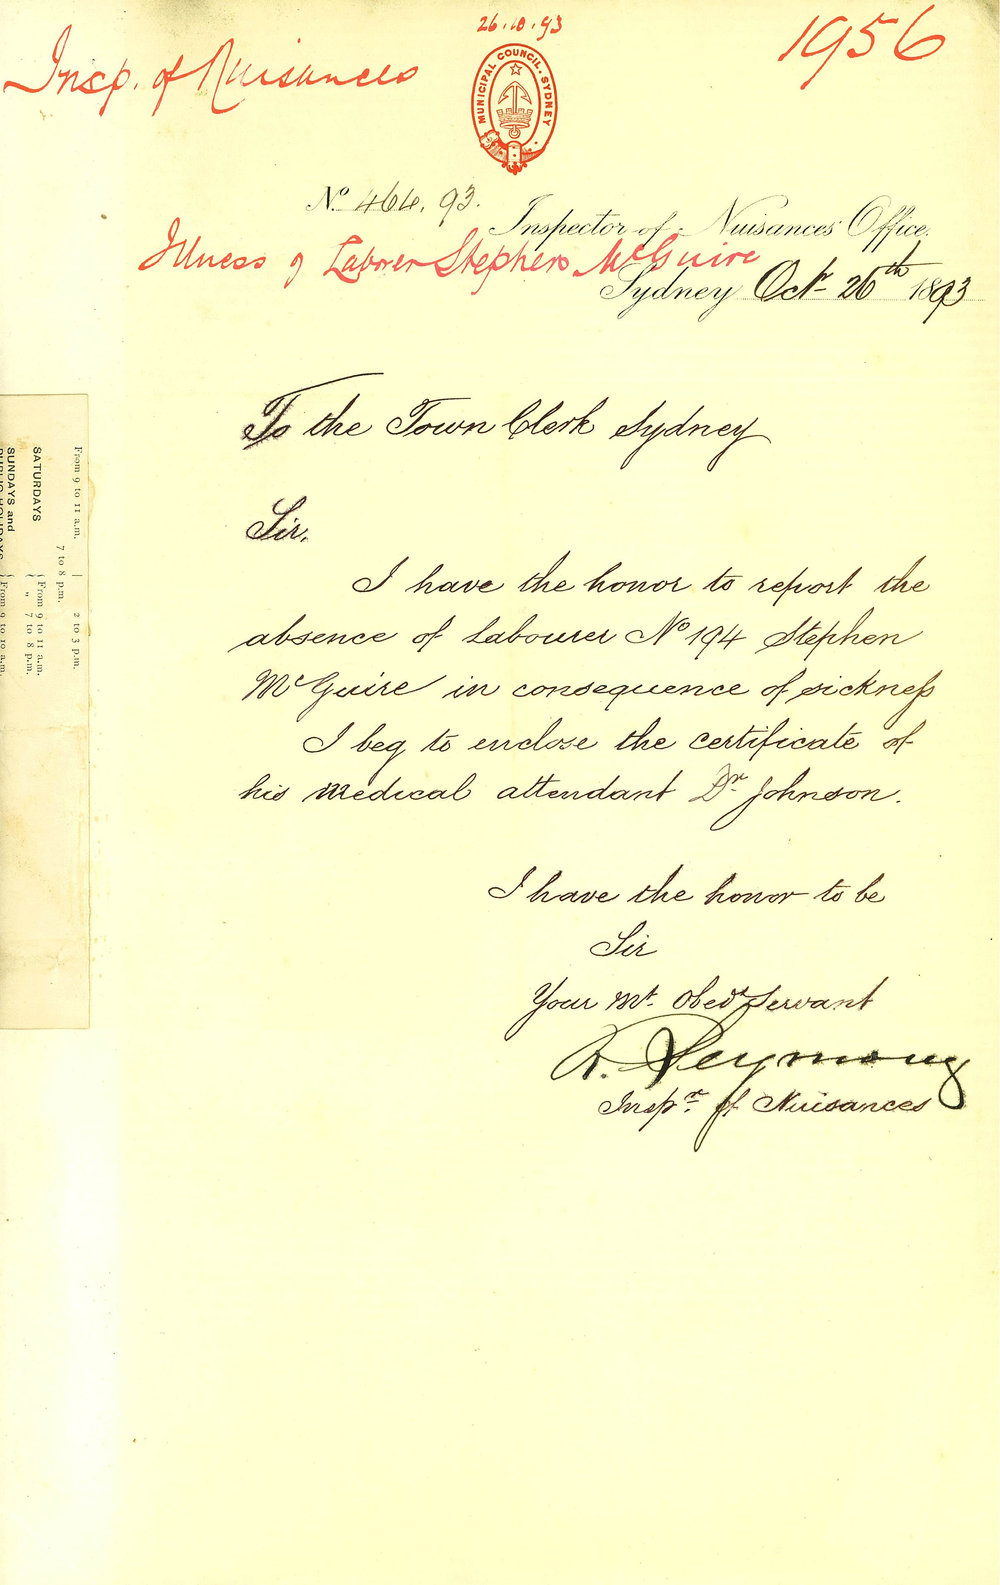 26.10.93
1956
Insp. of Nuisances
MUNICIPAL COUNCIL. SYDNEY
No 464. 93.
Inspector of Nuisances Office.
Illness of Laborer Stephen McGuire
Sydney Octr 26th 1893
To the Town Clerk Sydney
Sir,
I have the honor to report the
absence of Labourer No 194 Stephen
McGuire in consequence of sickness
I beg to enclose the certificate of
his medical attendant Dr Johnson.
I have the honor to be
Sir
Your Mt. Obedt Servant
R. Seymour
Inspr of Nuisances
From 9 to 11 a.m. | 2 to 3 p.m.
7 to 8 p.m.
SATURDAYS { From 9 to 11 a.m.
{ " 7 to 8 p.m.
SUNDAYS and { From 9 to 10 a.m.
PUBLIC HOLIDAYS